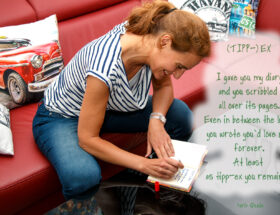 HAVANA
(TIPP-) EX
I gave you my diary
and you scribbled
all over its pages.
Even in between the
you wrote you'd love
forever.
At least
as tipp-ex you remain